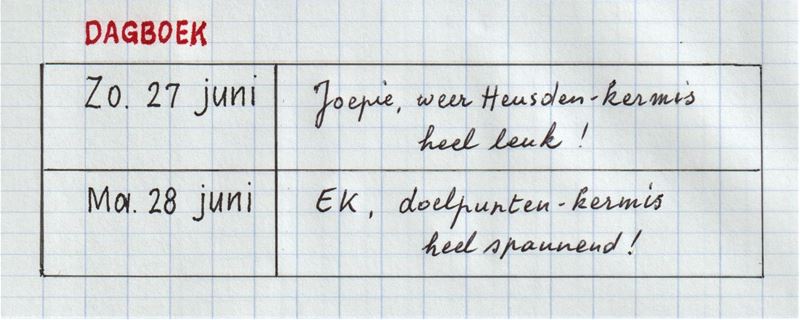 DAGBOEK
Zo. 27 juni
Joepie, weer Heusden-kermis
heel leuk!
Ma. 28 juni
EK, doelpunten-kermis
heel spannend!